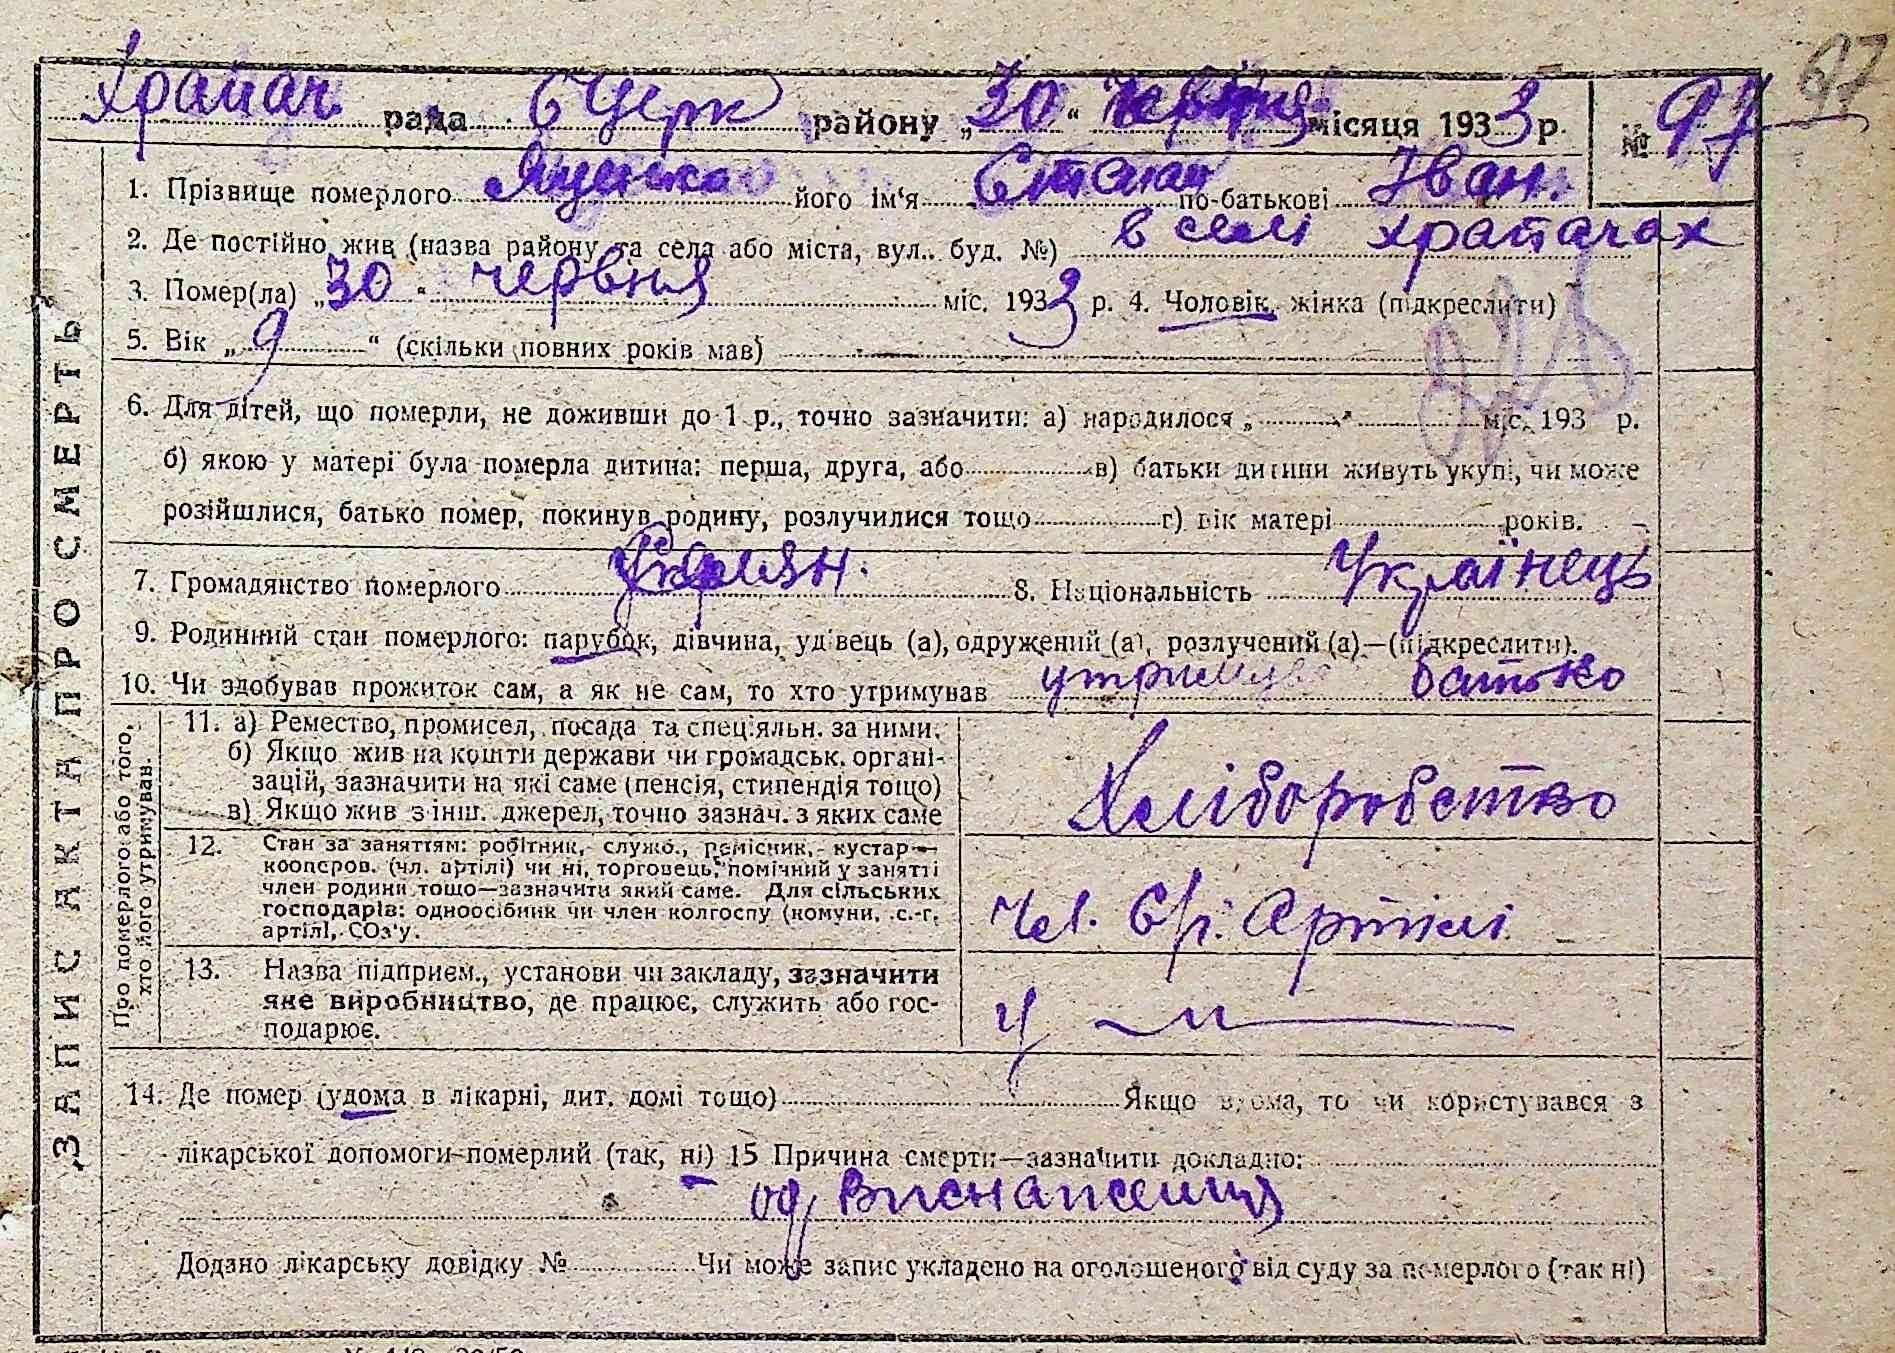 97
Храпач рада Б Церк району „30“ червня місяця 1933 р. № 97
1. Прізвище померлого Яценко його ім'я Степан по-батькові Іван.
2. Де постійно жив (назва району та села або міста, вул.. буд. №) в селі Храпачах
3. Помер(ла) „30“ червня міс. 1933 р. 4. Чоловік, жінка (підкреслити)
5. Вік „9“ (скільки повних років мав)
6. Для дітей, що померли, не доживши до 1 р., точно зазначити: а) народилося „ “ міс. 193 р.
б) якою у матері була померла дитина: перша, друга, або в) батьки дитини живуть укупі, чи може
розійшлися, батько помер, покинув родину, розлучилися тощо г) вік матері років.
7. Громадянство померлого 8. Національність Українець
9. Родинний стан померлого: парубок, дівчина, удівець (а), одружений (а), розлучений (а)—(підкреслити).
10. Чи здобував прожиток сам, а як не сам, то хто утримував утримував батько
ЗАПИС АКТА ПРО СМЕРТЬ
Про померлого або того,
хто його утримував.
11. а) Ремество, промисел, посада та спеціяльн. за ними.
б) Якщо жив на кошти держави чи громадськ. органі-
зацій, зазначити на які саме (пенсія, стипендія тощо)
в) Якщо жив з інш. джерел, точно зазнач. з яких саме
Хліборобство
12. Стан за заняттям: робітник, служб., ремісник, кустар—
кооперов. (чл. артілі) чи ні, торговець, помічний у занятті
член родини тощо—зазначити який саме. Для сільських
господарів: одноосібник чи член колгоспу (комуни, с.-г.
артілі, СОз'у.
чл. Артілі
13. Назва підприєм., установи чи закладу, зазначити
яке виробництво, де працює, служить або гос-
подарює.
14. Де помер (удома в лікарні, дит. домі тощо) Якщо вдома, то чи користувався з
лікарської допомоги померлий (так, ні) 15 Причина смерти—зазначити докладно:
од виснаження
Додано лікарську довідку № Чи може запис укладено на оголошеного від суду за померлого (так ні)